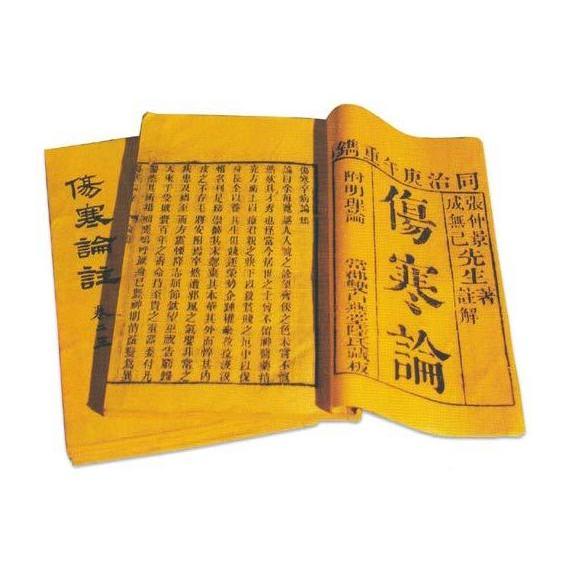 同治庚午重鐫
張仲景先生著
成無己先生註解
傷寒論
附明理論
常郡雙白燕堂陸氏藏板
傷寒卒病論集
論曰余每覽越人入虢之診望齊侯之色未嘗不慨
然歎其才秀也怪當今居世之士曾不留神醫藥精
究方術上以療君親之疾下以救貧賤之厄中以保
身長全以養其生但競逐榮勢企踵權豪孜孜汲汲
惟名利是務崇飾其末忽棄其本華其外而悴其內
皮之不存毛將安附焉卒然遭邪風之氣嬰非常之
疾患及禍至而方震慄降志屈節欽望巫祝告窮歸
天束手受敗賫百年之壽命持至貴之重器委付凡
醫恣其所措咄嗟嗚呼厥身已斃神明消滅變為異
傷寒論註